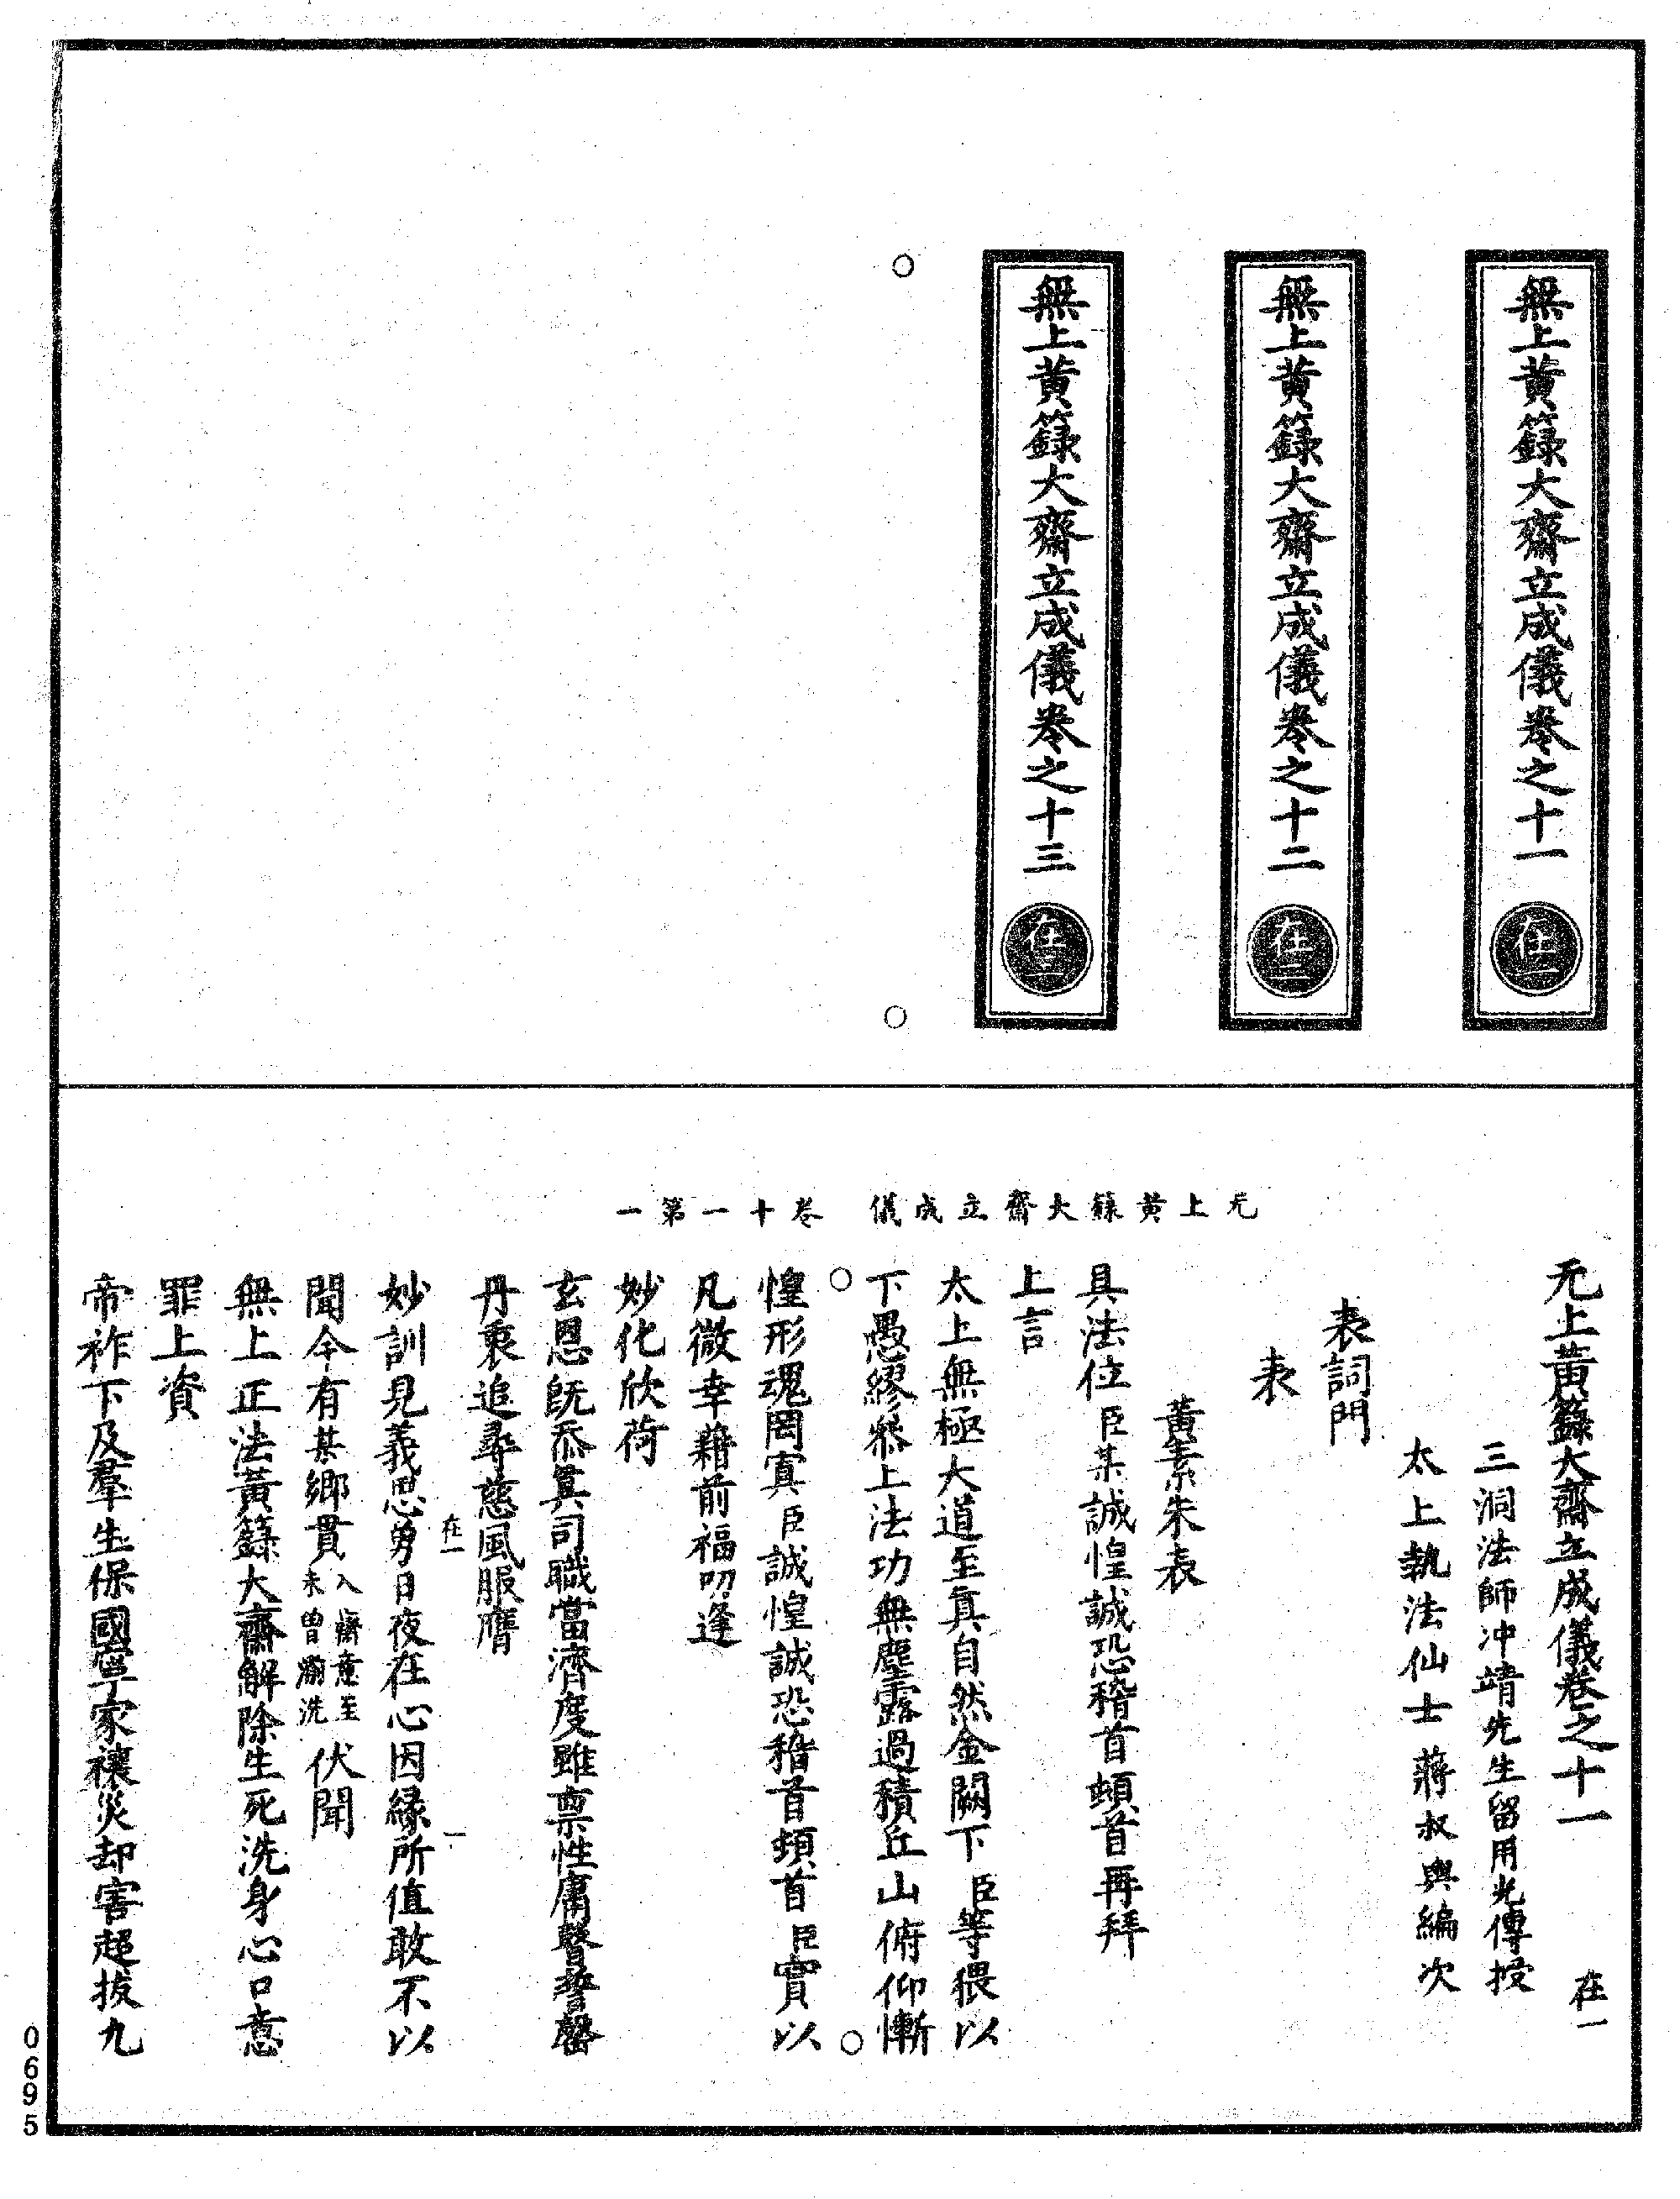 無上黃籙大齋立成儀卷之十一 在一
無上黃籙大齋立成儀卷之十二 在二
無上黃籙大齋立成儀卷之十三 在三
无上黃籙大齋立成儀 卷十一第一
无上黃籙大齋立成儀卷之十一 在一
三洞法師冲靖先生留用光傳授
太上執法仙士蔣叔輿編次
表詞門
表
黃素朱表
具法位臣某誠惶誠恐稽首頓首再拜
上言
太上無極大道至真自然金闕下臣等猥以
下愚繆叅上法功無塵露過積丘山俯仰慚
惶形魂罔寘臣誠惶誠恐稽首頓首臣實以
凡微幸藉前福叨逢
妙化欣荷
玄恩旣忝真司職當濟度雖禀性庸瞽誓罄
丹衷追尋慈風服膺
在一 一
妙訓見義思勇日夜在心因緣所值敢不以
聞今有某鄉貫入齋意至未曾瀚洗伏聞
無上正法黃籙大齋解除生死洗身心口意
罪上資
帝祚下及羣生保國寧家禳災却害超拔九
0695